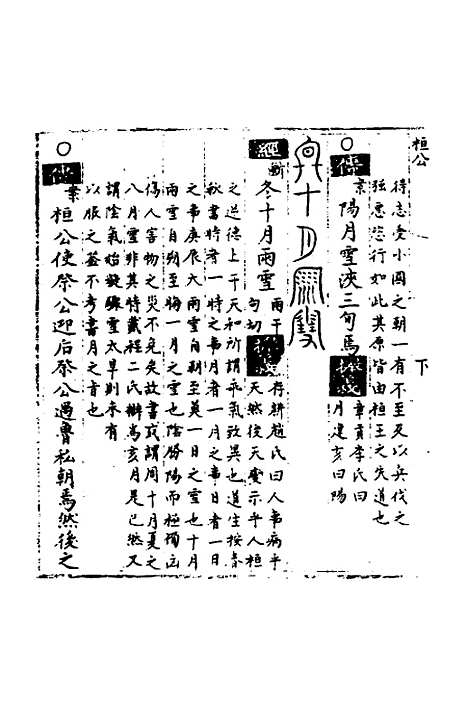 桓公 下
待志受小國之朝一有不至又以兵伐之
弦惠恣行如此其原皆由桓王之失道也
○傳案陽月雪浹三旬焉 章貢李氏曰
月建亥曰陽
冬十月雨雪
經斷冬十月雨雪 雨于
句切 存耕趙氏曰人事病乎
天然後天變示乎人桓
之逆德上干天和所謂乖氣致異也道生按春
秋書時者一時之事月者一月之事日者一日
之事庚辰大雨雪自朝至莫一日之雪也十月
雨雪自朔至晦一月之雪也陰勝陽而極獨凶
傷人害物之災不免矣故書或謂周十月夏之
八月雪非其時戴程二氏辯為亥月是已然又
謂陰氣始凝驟雪太早則未有
以服之蓋不考書月之旨也
○傳案桓公使祭公迎后祭公遇魯私朝焉然後之